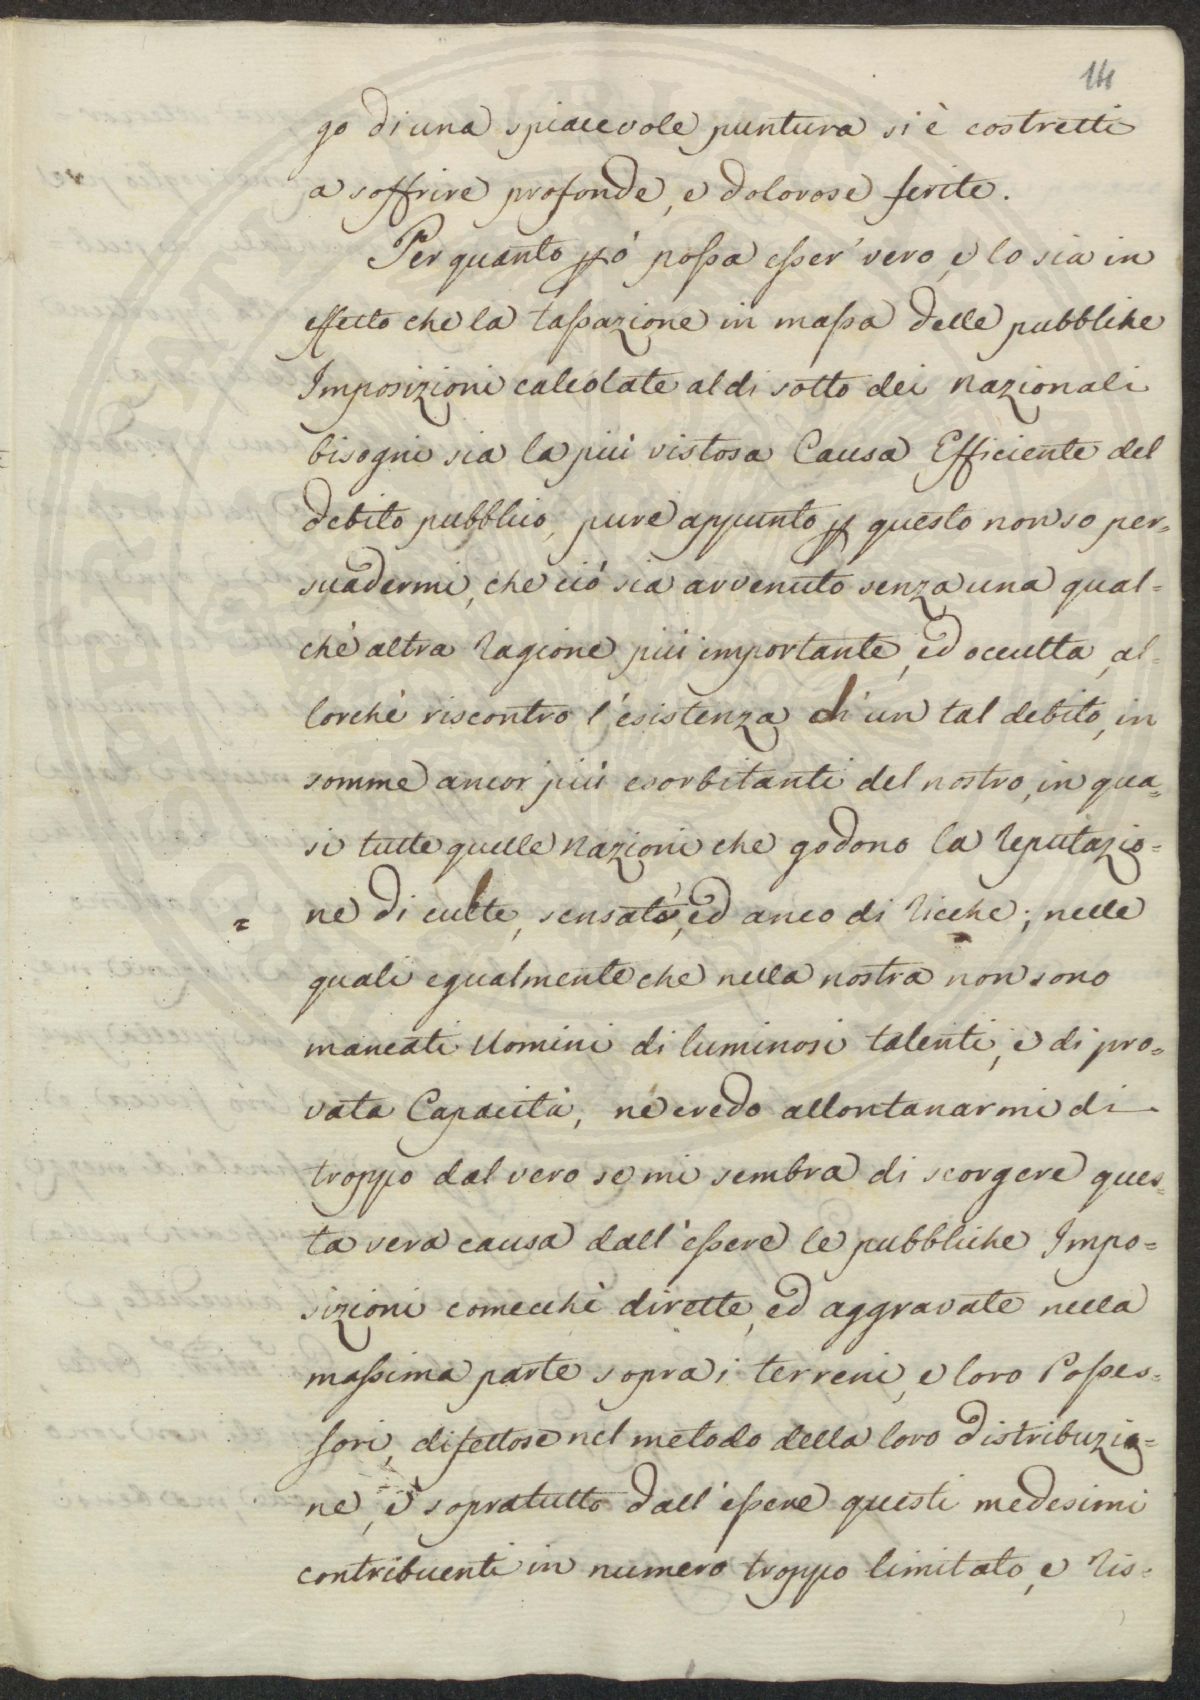 14
go di una spiacevole puntura si è costretti
a soffrire profonde, e dolorose ferite.
Per quanto però possa esser vero, e lo sia in
effetto che la tassazione in massa delle pubbliche
Imposizioni calcolate al di sotto dei nazionali
bisogni sia la più vistosa Causa Efficiente del
debito pubblico, pure appunto per questo non so per=
suadermi, che ciò sia avvenuto senza una qual=
che altra ragione più importante, ed occulta, al=
lorchè riscontro l'esistenza di un tal debito, in
somme ancor più esorbitanti del nostro, in qua=
si tutte quelle nazioni che godono la reputazio=
= ne di culte, sensate, ed anco di ricche; nelle
quali egualmente che nella nostra non sono
mancati Uomini di luminosi talenti, e di pro=
vata Capacità, nè credo allontanarmi di
troppo dal vero se mi sembra di scorgere ques=
ta vera causa dall'essere le pubbliche Impo=
sizioni comecchè dirette, ed aggravate nella
massima parte sopra i terreni, e loro Posses=
sori, difettose nel metodo della loro distribuzio=
ne, e sopratutto dall'essere questi medesimi
contribuenti in numero troppo limitato, e ris=